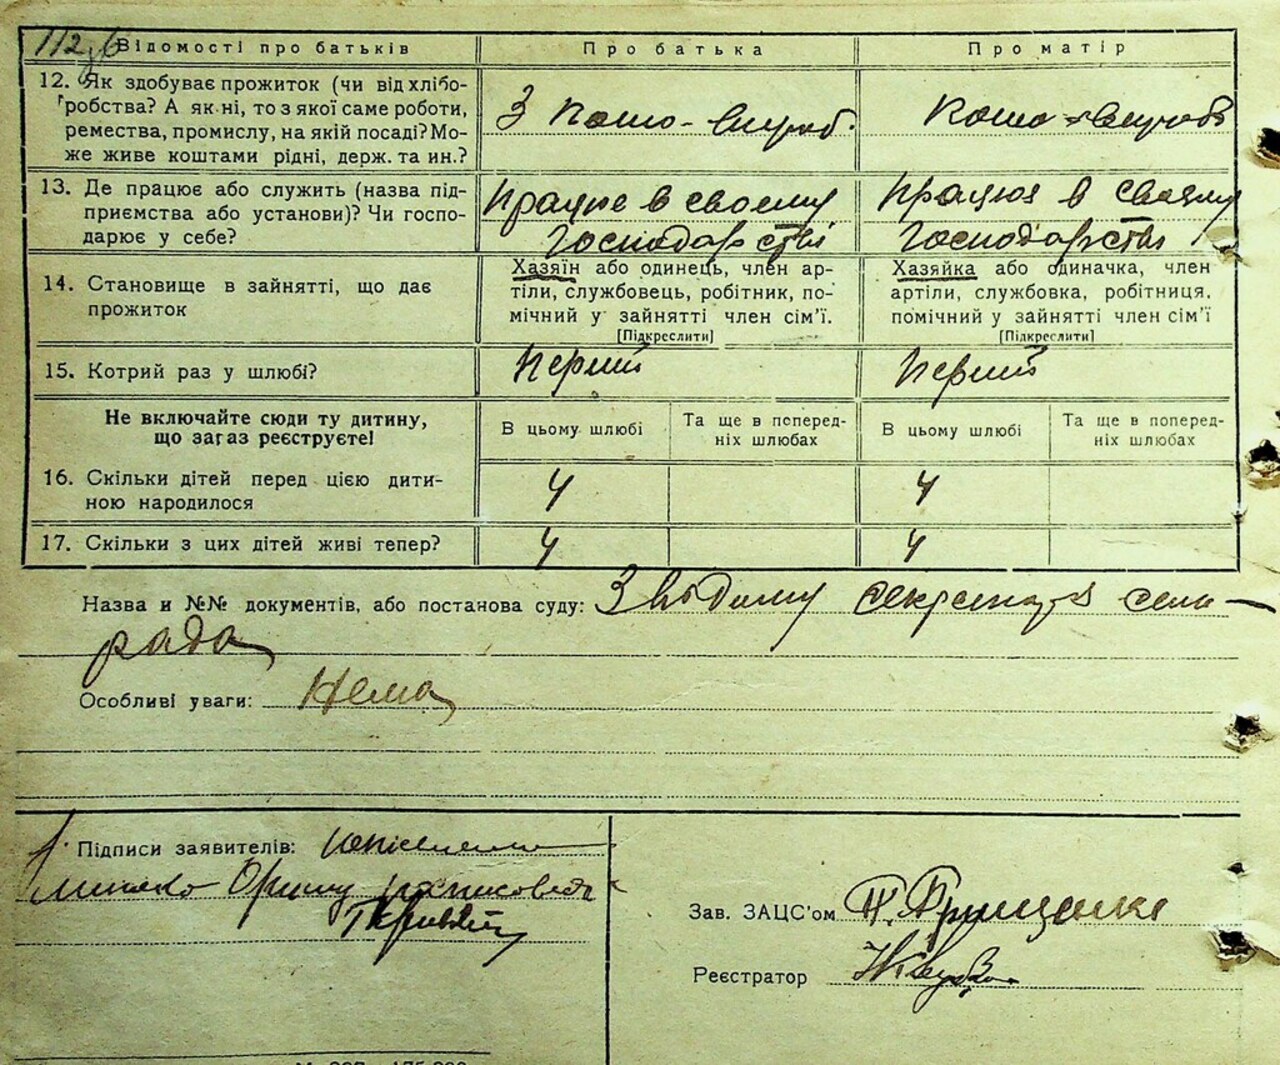 112 зв Відомості про батьків Про батька Про матір
12. Як здобуває прожиток (чи від хлібо-
робства? А як ні, то з якої саме роботи,
ремества, промислу, на якій посаді? Мо-
же живе коштами рідні, держ. та ин.?
З
13. Де працює або служить (назва під-
приємства або установи)? Чи госпо-
дарює у себе?
Працює в своєму
Господарстві
Працює в своєму
Господарстві
14. Становище в зайнятті, що дає
прожиток
Хазяїн або одинець, член ар-
тіли, службовець, робітник, по-
мічний у зайнятті член сім'ї.
[Підкреслити]
Хазяйка або одиначка, член
артіли, службовка, робітниця.
помічний у зайнятті член сім'ї
[Підкреслити]
15. Котрий раз у шлюбі?
Перший
Перший
Не включайте сюди ту дитину,
що загаз реєструєте!
В цьому шлюбі
Та ще в поперед-
ніх шлюбах
В цьому шлюбі
Та ще в поперед-
ніх шлюбах
16. Скільки дітей перед цією дити-
ною народилося
4
4
17. Скільки з цих дітей живі тепер?
4
4
Назва и №№ документів, або постанова суду: З відому секретаря сель-
рада
Особливі уваги: Нема
Підписи заявителів:
Орину
Зав. ЗАЦС'ом
Реєстратор